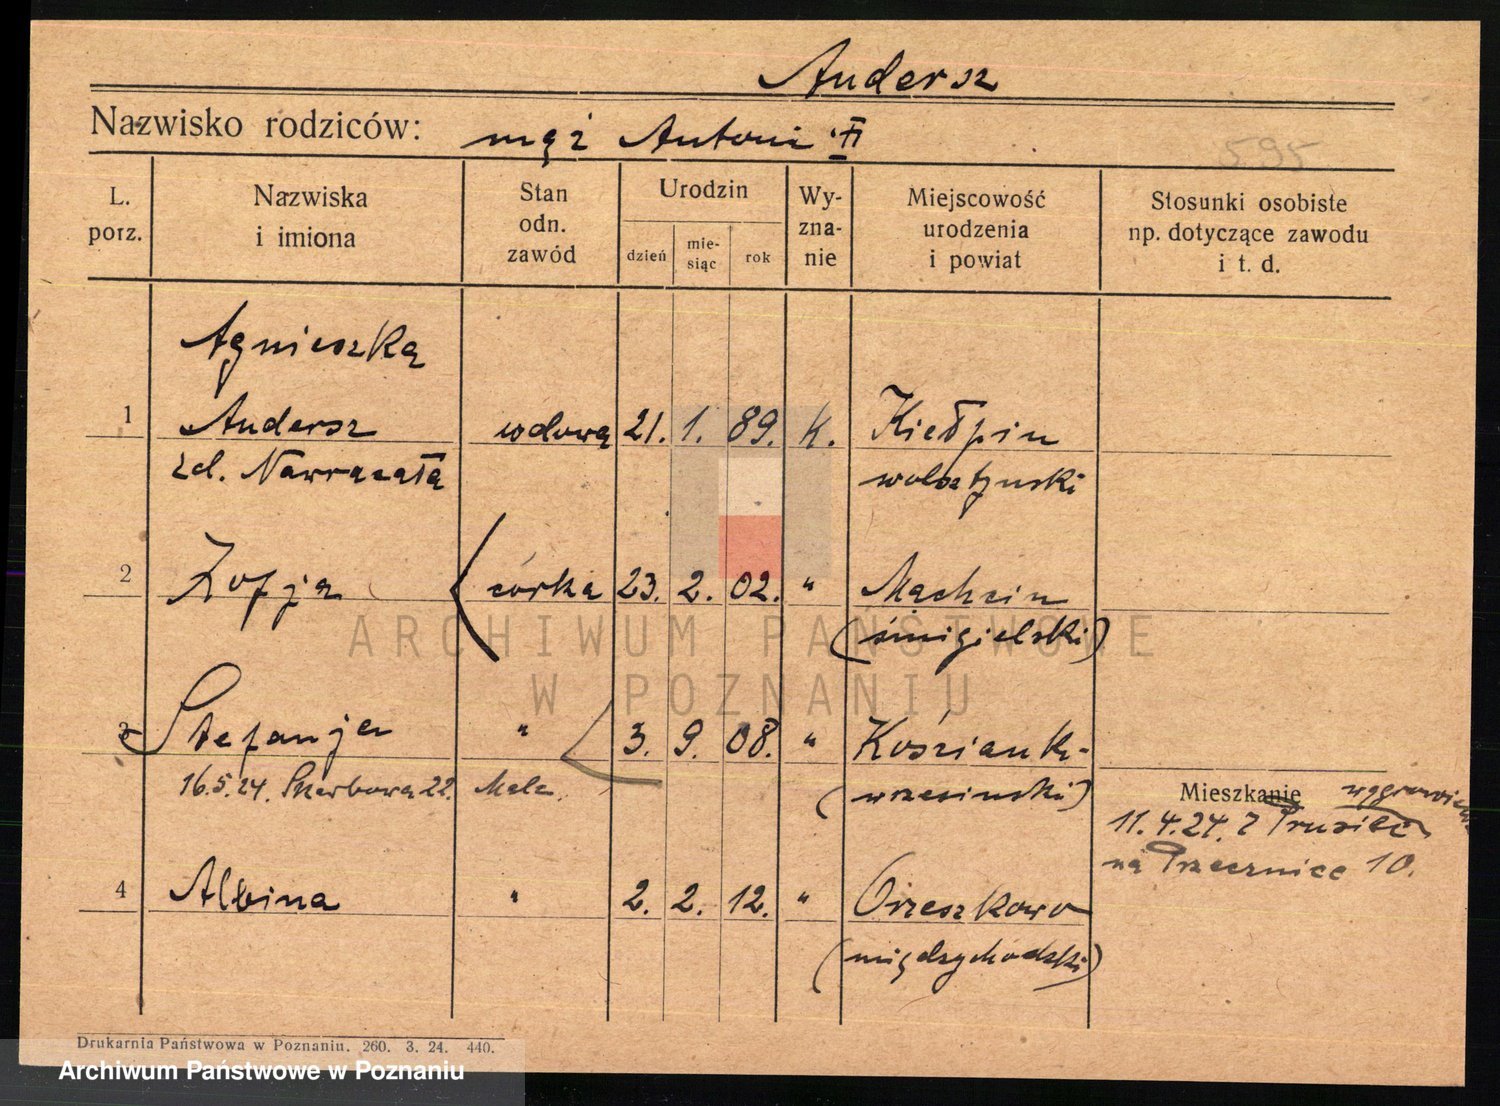 Andersz
Nazwisko rodziców: mąż Antoni
595
L. porz.
Nazwiska i imiona
Stan odn. zawód
Urodzin
dzień
mie- siąc
rok
Wy- zna- nie
Miejscowość urodzenia i powiat
Stosunki osobiste np. dotyczące zawodu i t. d.
Agnieszka
1 Andersz wdowa 21. 1. 89. k. Kiełpin
zd. Nawracała wolsztyński
2 Zofja córka 23. 2. 02. " Machcin
(śmigielski)
3 Stefanja " 3. 9. 08. " Kościank-
16.5.24. Skarbowa 22. (wrzesiński)
Mieszkanie
11.4.24. z Prusiec
na Przecznice 10.
4 Albina " 2. 2. 12. " Orzeszkowo
(międzychodzki)
Drukarnia Państwowa w Poznaniu. 260. 3. 24. 440.
ARCHIWUM PAŃSTWOWE
W POZNANIU
Archiwum Państwowe w Poznaniu